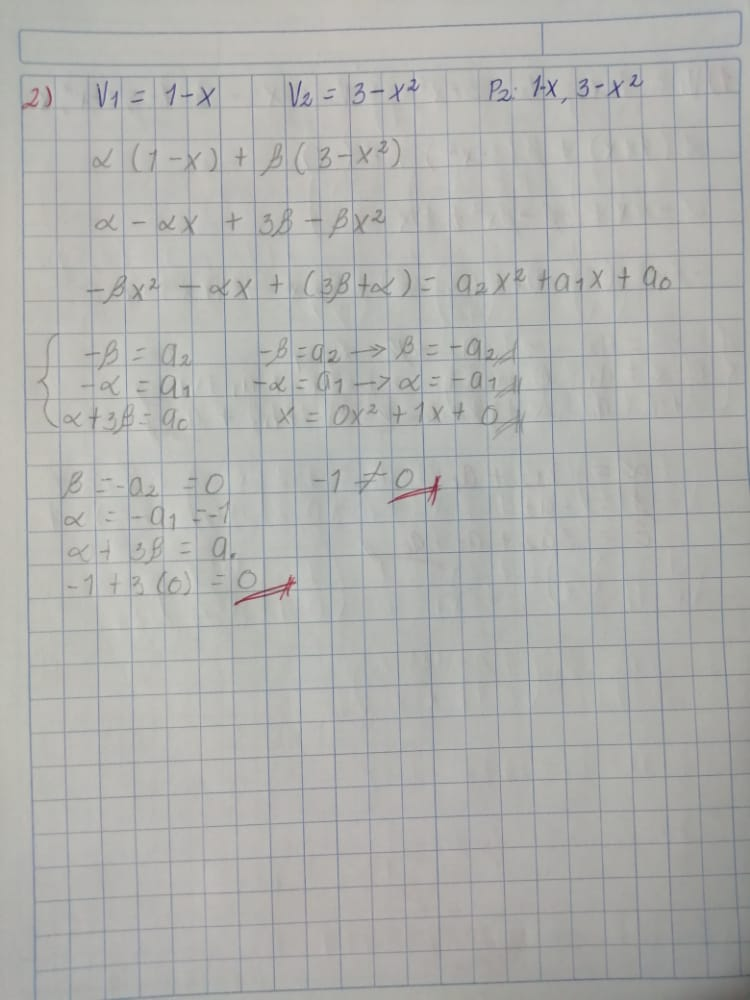 2) V1 = 1-x V2 = 3-x² P2: 1-x, 3-x²
α (1-x) + β (3-x²)
α - αx + 3β - βx²
-βx² - αx + (3β+α) = a2x² + a1x + a0
-β = a2 -β = a2 → β = -a2
-α = a1 -α = a1 → α = -a1
α+3β = a0 x = 0x² + 1x + 0
β = -a2 = 0 -1 ≠ 0
α = -a1 = -1
α + 3β = a.
-1 + 3 (0) = 0